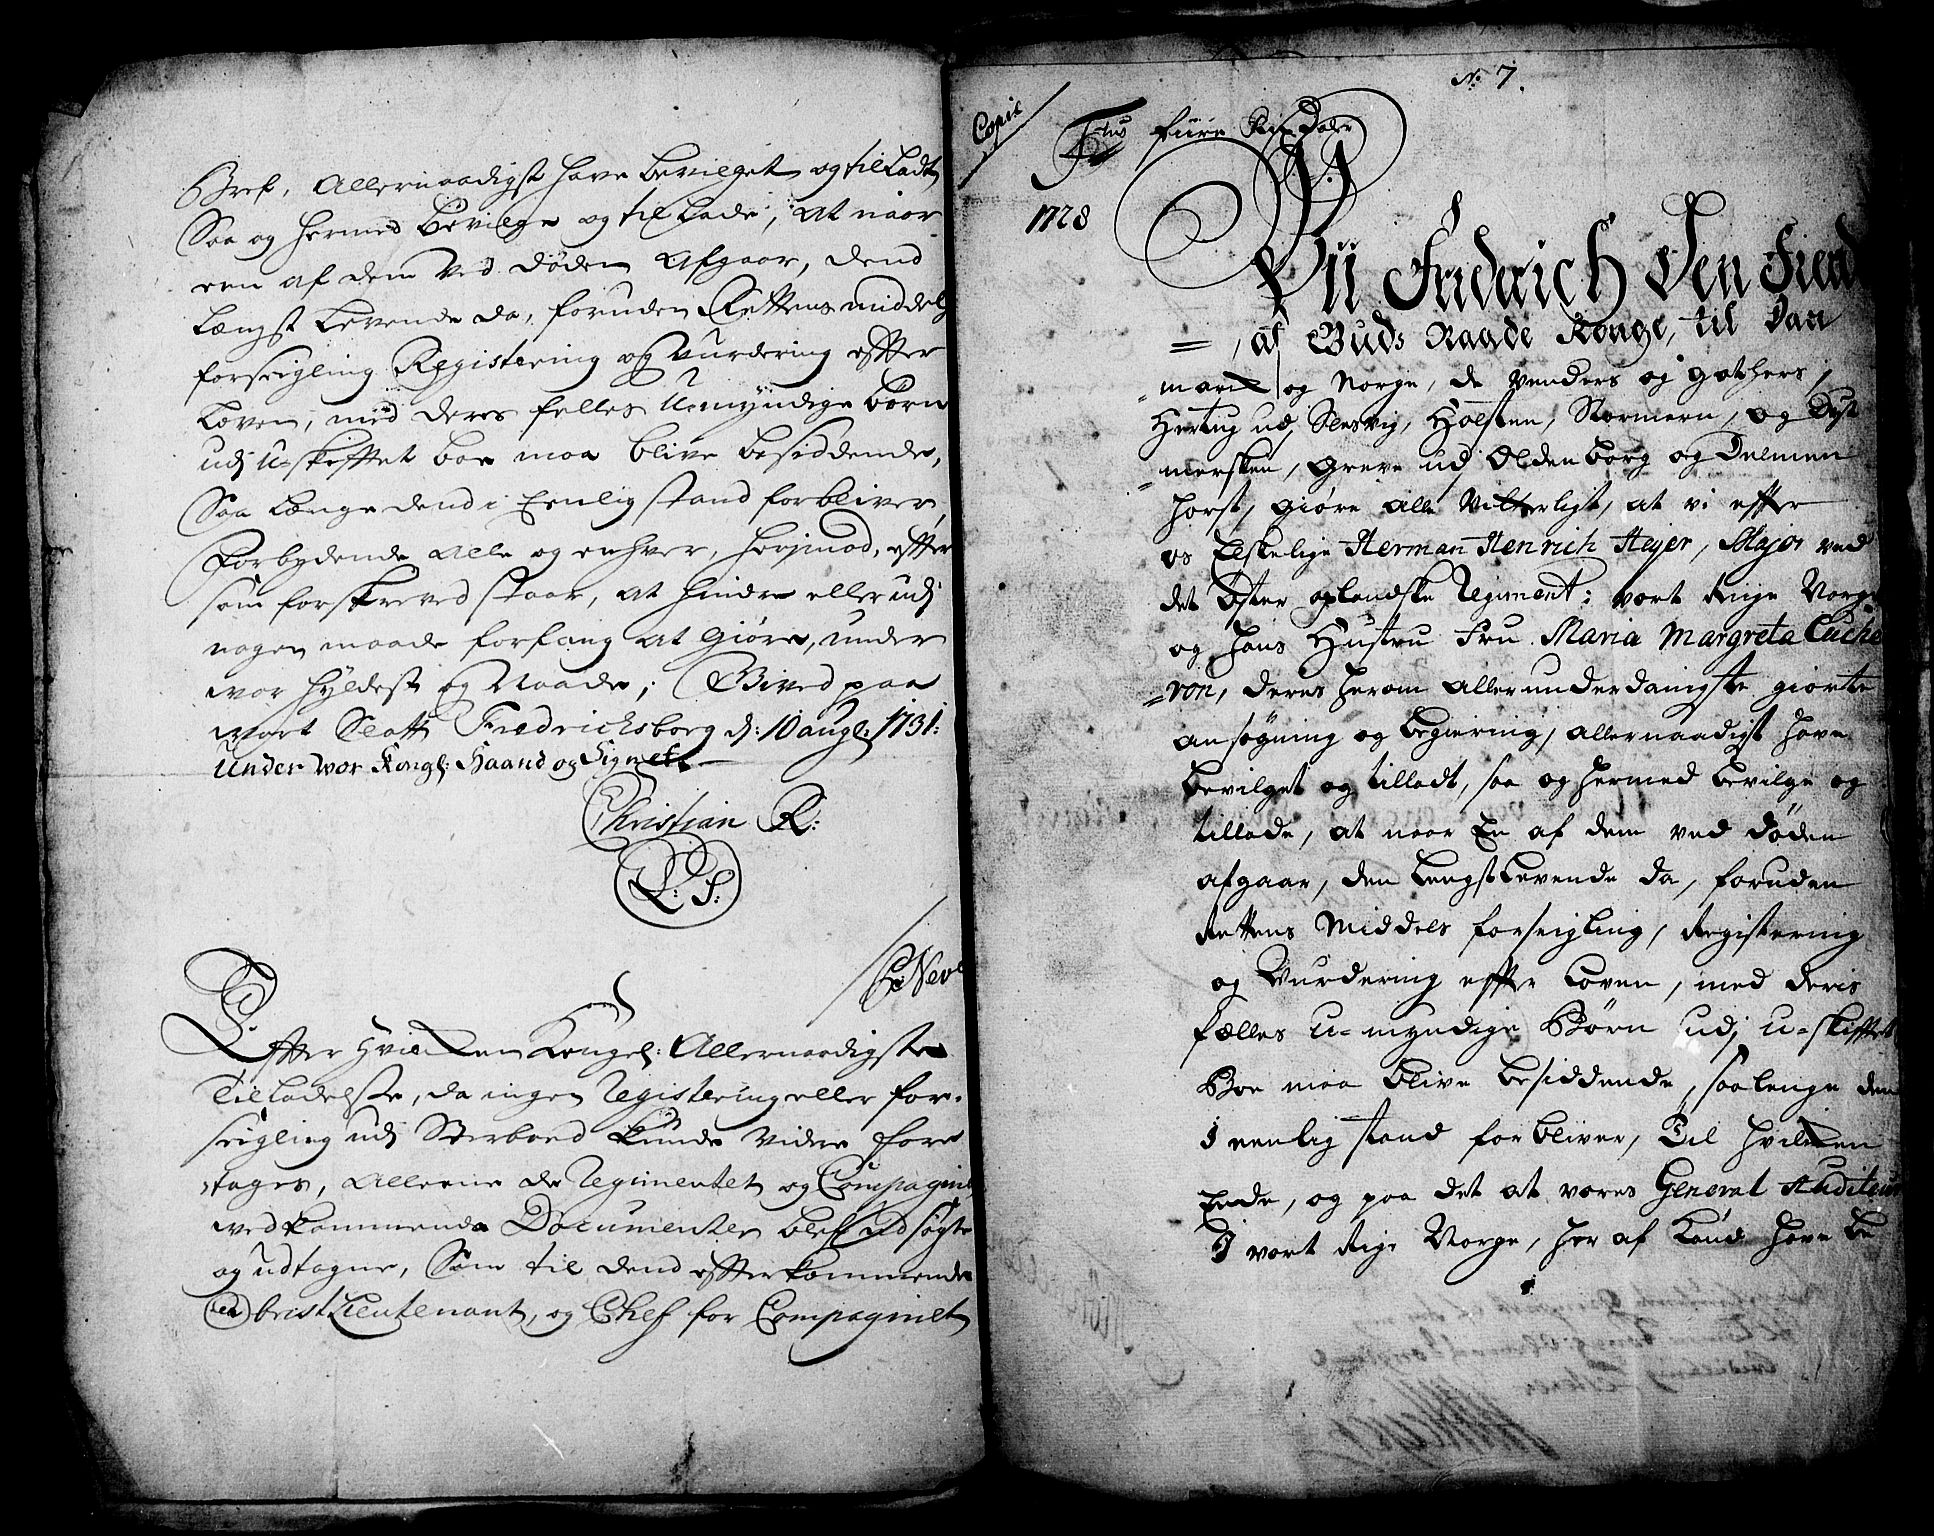 Bref, Allernaadigst have bevilget og tilladt
Saa og hermed bevilge og tillade, at naar
een af dem ved døden afgaar, dend
længst levende da, foruden Rettens middels
forseigling Registering og Vurdering efter
loven, med deres felles Umyndige børn
udj u-skifftet boe maa blive besiddende,
Saa længe dend i Eenlig stand forbliver,
Forbydende alle og enhver, herjmod, efter
som forskreved staar, at hindre eller udj
nogen maade forfang at giøre, under
vor hyldest og Naade; Gived paa
vort Slott Fredrichsborg d: 10 aug: 1731:
Under vor Kongl: Haand og Signet.
Christian R:
L: S:
Efter hvilken Kongel: Allernaadigste
Tilladelse, da ingen Registering eller for-
seigling udj Sterboed kunde videre fore
tages, allene de Regimentet og Compagniet
vedkommende Documenter blef udsøgte
og udtagne, Som til dend efterkommende
Obristlieutenant, og Chef for Compagniet
No 7.
Copie
fiire Rix Daler
1728
Vii Friderich Den Fierd
= , af Guds Naade Konge, til Dan
= march og Norge, de Venders og Gothers,
Hertug ud, Slesvig, Holsten, Stormarn, og Dyt
= mersken, Greve ud, Oldenborg og Delmen
horst, giøre alle vitterligt, at vi efter
os Elskelige Herman Henrich Heyer, Major ved
det Øster oplandske Regiment: vort Rige Norge
og hans Hustru Fru Maria Margreta Cuche
= ron, deres herom allerunderdanigste giorte
ansøgning og begiering, allernaadigst have
bevilget og tilladt, saa og hermed bevilge og
tillade, at naar En af dem ved døden
afgaar, den lengstlevende da, foruden
Rettens Middels forseigling, Registering
og Vurdering efter loven, med deris
fælles u-myndige Børn udj u-skifftet
Boe maa blive besiddende, saalenge den
I eenlig stand forbliver, Til hvilken
Ende, og paa det at vores General Auditeur
I vort Rige Norge, her af kand have be